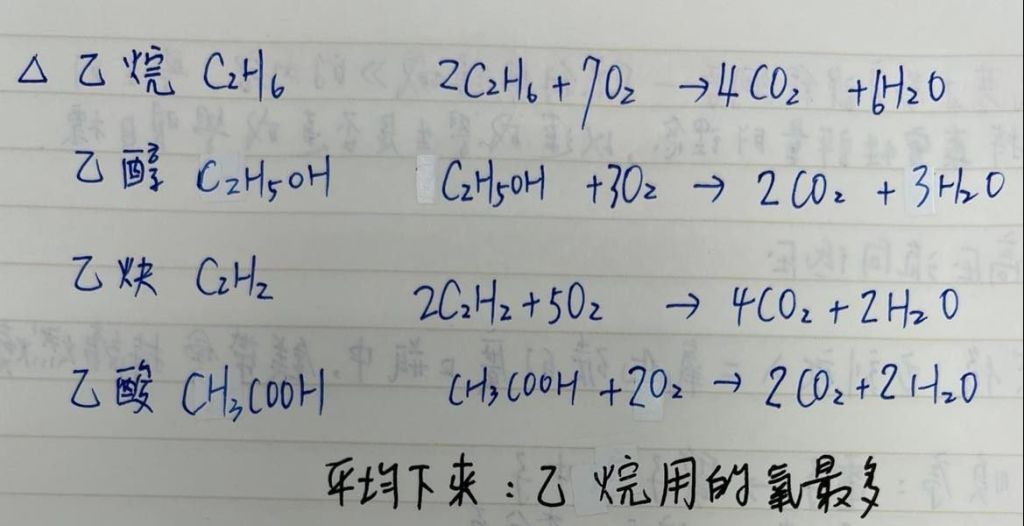 △ 乙烷 C₂H₆ 2C₂H₆ + 7O₂ → 4CO₂ + 6H₂O
乙醇 C₂H₅OH C₂H₅OH + 3O₂ → 2CO₂ + 3H₂O
乙炔 C₂H₂ 2C₂H₂ + 5O₂ → 4CO₂ + 2H₂O
乙酸 CH₃COOH CH₃COOH + 2O₂ → 2CO₂ + 2H₂O
平均下來：乙烷用的氧最多